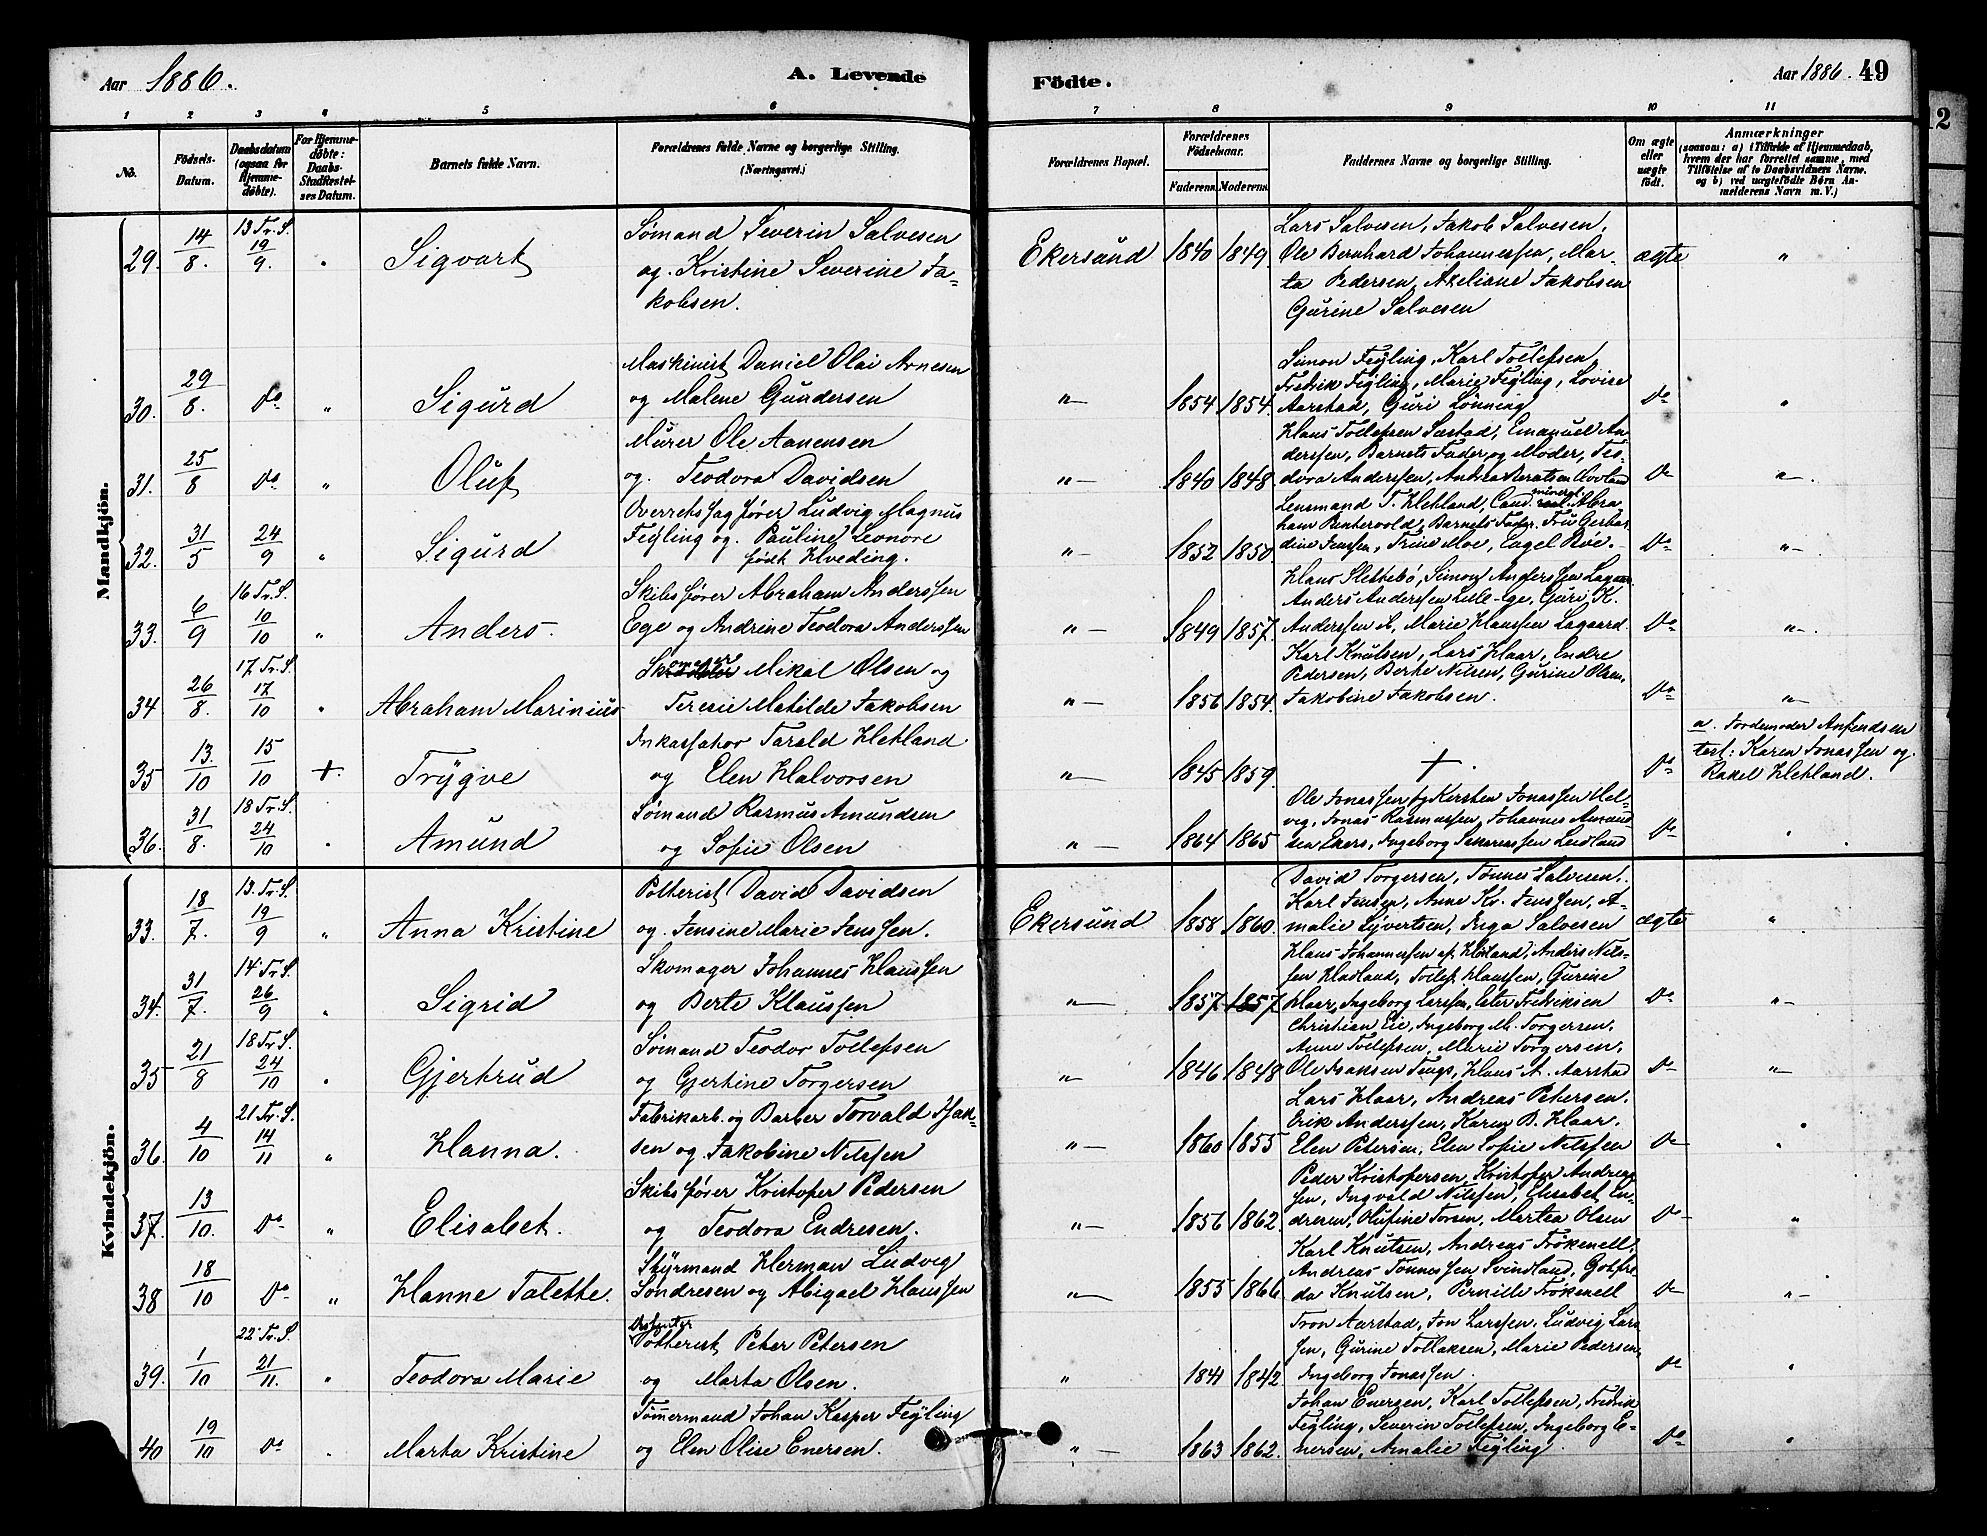 Aar 1886.
A. Levende
Födte.
Aar 1886. 49
12
1 2 3 4 5 6 7 8 9 10 11
No.
Födsels-Datum.
Daabsdatum (ogsaa for Hjemme-døbte).
For Hjemme-døbte: Daabs-Stadfæstel-ses Datum.
Barnets fulde Navn.
Forældrenes fulde Navne og borgerlige Stilling. (Næringsvei.)
Forældrenes Bopæl.
Forældrenes Födselsaar.
Faderens. Moderens.
Faddernes Navne og borgerlige Stilling.
Om ægte eller uægte født.
Anmærkninger
(saasom: a) i Tilfælde af Hjemmedaab, hvem der har forrettet samme, med Tilføielse af to Daabsvidners Navne, og b) ved uægtefödte Börn An-melderens Navn m. V.)
Mandkjön.
29. 14/8. 13 Tr. S. 19/9. " Sigvart
Sømand Severin Salvesen
og Kristine Severine Ja-
kobsen.
Ekersund 1840 1849.
Lars Salvesen, Jakob Salvesen,
Ole Bernhard Johannessen, Mar-
ta Pedersen, Axeliane Jakobsen
Gurine Salvesen
ægte "
30. 29/8. Do " Sigurd
Maskinist Daniel Olai Arnesen
og Malene Gundersen
"— 1854 1854.
Simon Feyling, Karl Tollefsen,
Fredrik Feyling, Marie Feyling, Lovise
Aarstad, Guri Lønning
Do "
31. 25/8 Do " Oluf
Murer Ole Aanensen
og Teodora Davidsen
"— 1840 1848
Hans Tollefsen Sæstad, Emanuel An-
derssen, Barnets Fader og Moder, Teo-
dora Anderssen, Andrea Hovland
Do "
32. 31/5 24/9 " Sigurd
Overretssagfører Ludvig Magnus
Feyling og Pauline Leonore
født Hveding.
"— 1852 1850.
Lensmand T. Hetland, Cand. mineral. Abra-
ham Puntervold, Barnets Fader, Fru Gerhar-
dine Jenssen, Trine Moe, Engel Roe.
Do "
33. 6/9 16 Tr. S. 10/10 " Anders.
Skibsfører Abraham Anderssen
Ege og Andrine Teodora Anderssen
"— 1849 1857.
Hans Slettebö, Simon Anderssen Lagaard
Anders Anderssen Lille-Ege, Guri K.
Anderssen, Marie Hanssen Lagaard.
Do "
34 26/8. 17 Tr. S. 17/10 " Abraham Marinius
Skomager Mikal Olsen og
Teresie Matilde Jakobsen
"— 1856 1854.
Karl Knutsen, Lars Haar, Endre
Pedersen, Berte Nilsen, Gurine Olsen,
Jakobine Jakobsen.
Do "
35 13/10 15/10 +. Trygve
Inkassator Tarald Hetland
og Elen Halvorsen
"— 1845 1859.
+.
Do
a. Jordemoder Anfindsen
test: Karen Jonassen og
Rakel Hetland.
36. 31/8. 18 Tr. S. 24/10 " Amund
Sømand Rasmus Amundsen
og Sofie Olsen
"— 1864 1865
Ole Jonassen og Kirsten Jonassen Hel-
vig, Jonas Rasmussen, Johannes Amund-
sen Ekers, Ingeborg Sakariassen Leidland
Do "
Kvindekjön.
33. 18/7. 13. Tr. S. 19/9 " Anna Kristine
Potterist David Davidsen
og Jensine Marie Jenssen.
Ekersund 1858 1860.
David Torgersen, Tønnes Salvesen,
Karl Jensen, Anne Kr. Jenssen, A-
malie Syvertsen, Inga Salvesen
ægte "
34. 31/7. 14 Tr. S. 26/9 " Sigrid
Skomager Johannes Hanssen
og Berte Klaussen
"— 1857 1857
Hans Johannessen af Hetland, Anders Nils-
sen Hadland, Tollef Hanssen, Gurine
Haar, Ingeborg Larssen, Fredriksen
Do "
35 21/8 18 Tr. S. 24/10 " Gjertrud
Sømand Teodor Tollefsen
og Gjertine Torgersen
"— 1846 1848
Christian Eie, Ingeborg M. Torgersen,
Anne Tollefsen, Marie Torgersen,
Ole Isaksen Tengs, Hans A. Aarstad
Do "
36. 4/10 21 Tr. S. 14/11 " Hanna.
Fabrikarb. og Barber Torvald Isak-
sen og Jakobine Nilssen
"— 1860 1855
Lars Haar, Andreas Petersen,
Erik Anderssen, Karen B. Haar,
Elen Petersen, Elen Sofie Nilssen
Do "
37. 13/10. Do " Elisabet.
Skibsfører Kristofer Pedersen
og Teodora Endresen.
"— 1856 1862.
Peder Kristofersen, Kristofer Andreas-
sen, Ingvald Nilssen, Elisabet En-
dresen, Olufine Torsen, Martea Olsen
Do "
38 18/10 Do " Hanne Talette.
Styrmand Herman Ludvig
Søndresen og Abigael Hanssen
"— 1855 1866
Karl Knutsen, Andreas Frøkenell,
Andreas Tønnessen Svindland, Gotfre-
da Knutsen, Pernille Frøkenell
Do "
39. 1/10 22 Tr. S. 21/11. " Teodora Marie
Potterist Peter Petersen
og Marta Olsen.
" 1841 1842.
Tron Aarstad, Jon Larssen, Ludvig Lars-
sen, Gurine Tollaksen, Marie Pedersen,
Ingeborg Jonassen.
Do "
40 19/10 Do " Marta Kristine
Tømmermand Johan Kasper Feyling
og Elen Olise Enersen.
"— 1863 1862.
Johan Enersen, Karl Tollefsen, Fredrik
Feyling, Severin Tollefsen, Ingeborg E-
nersen, Amalie Feyling.
Do "